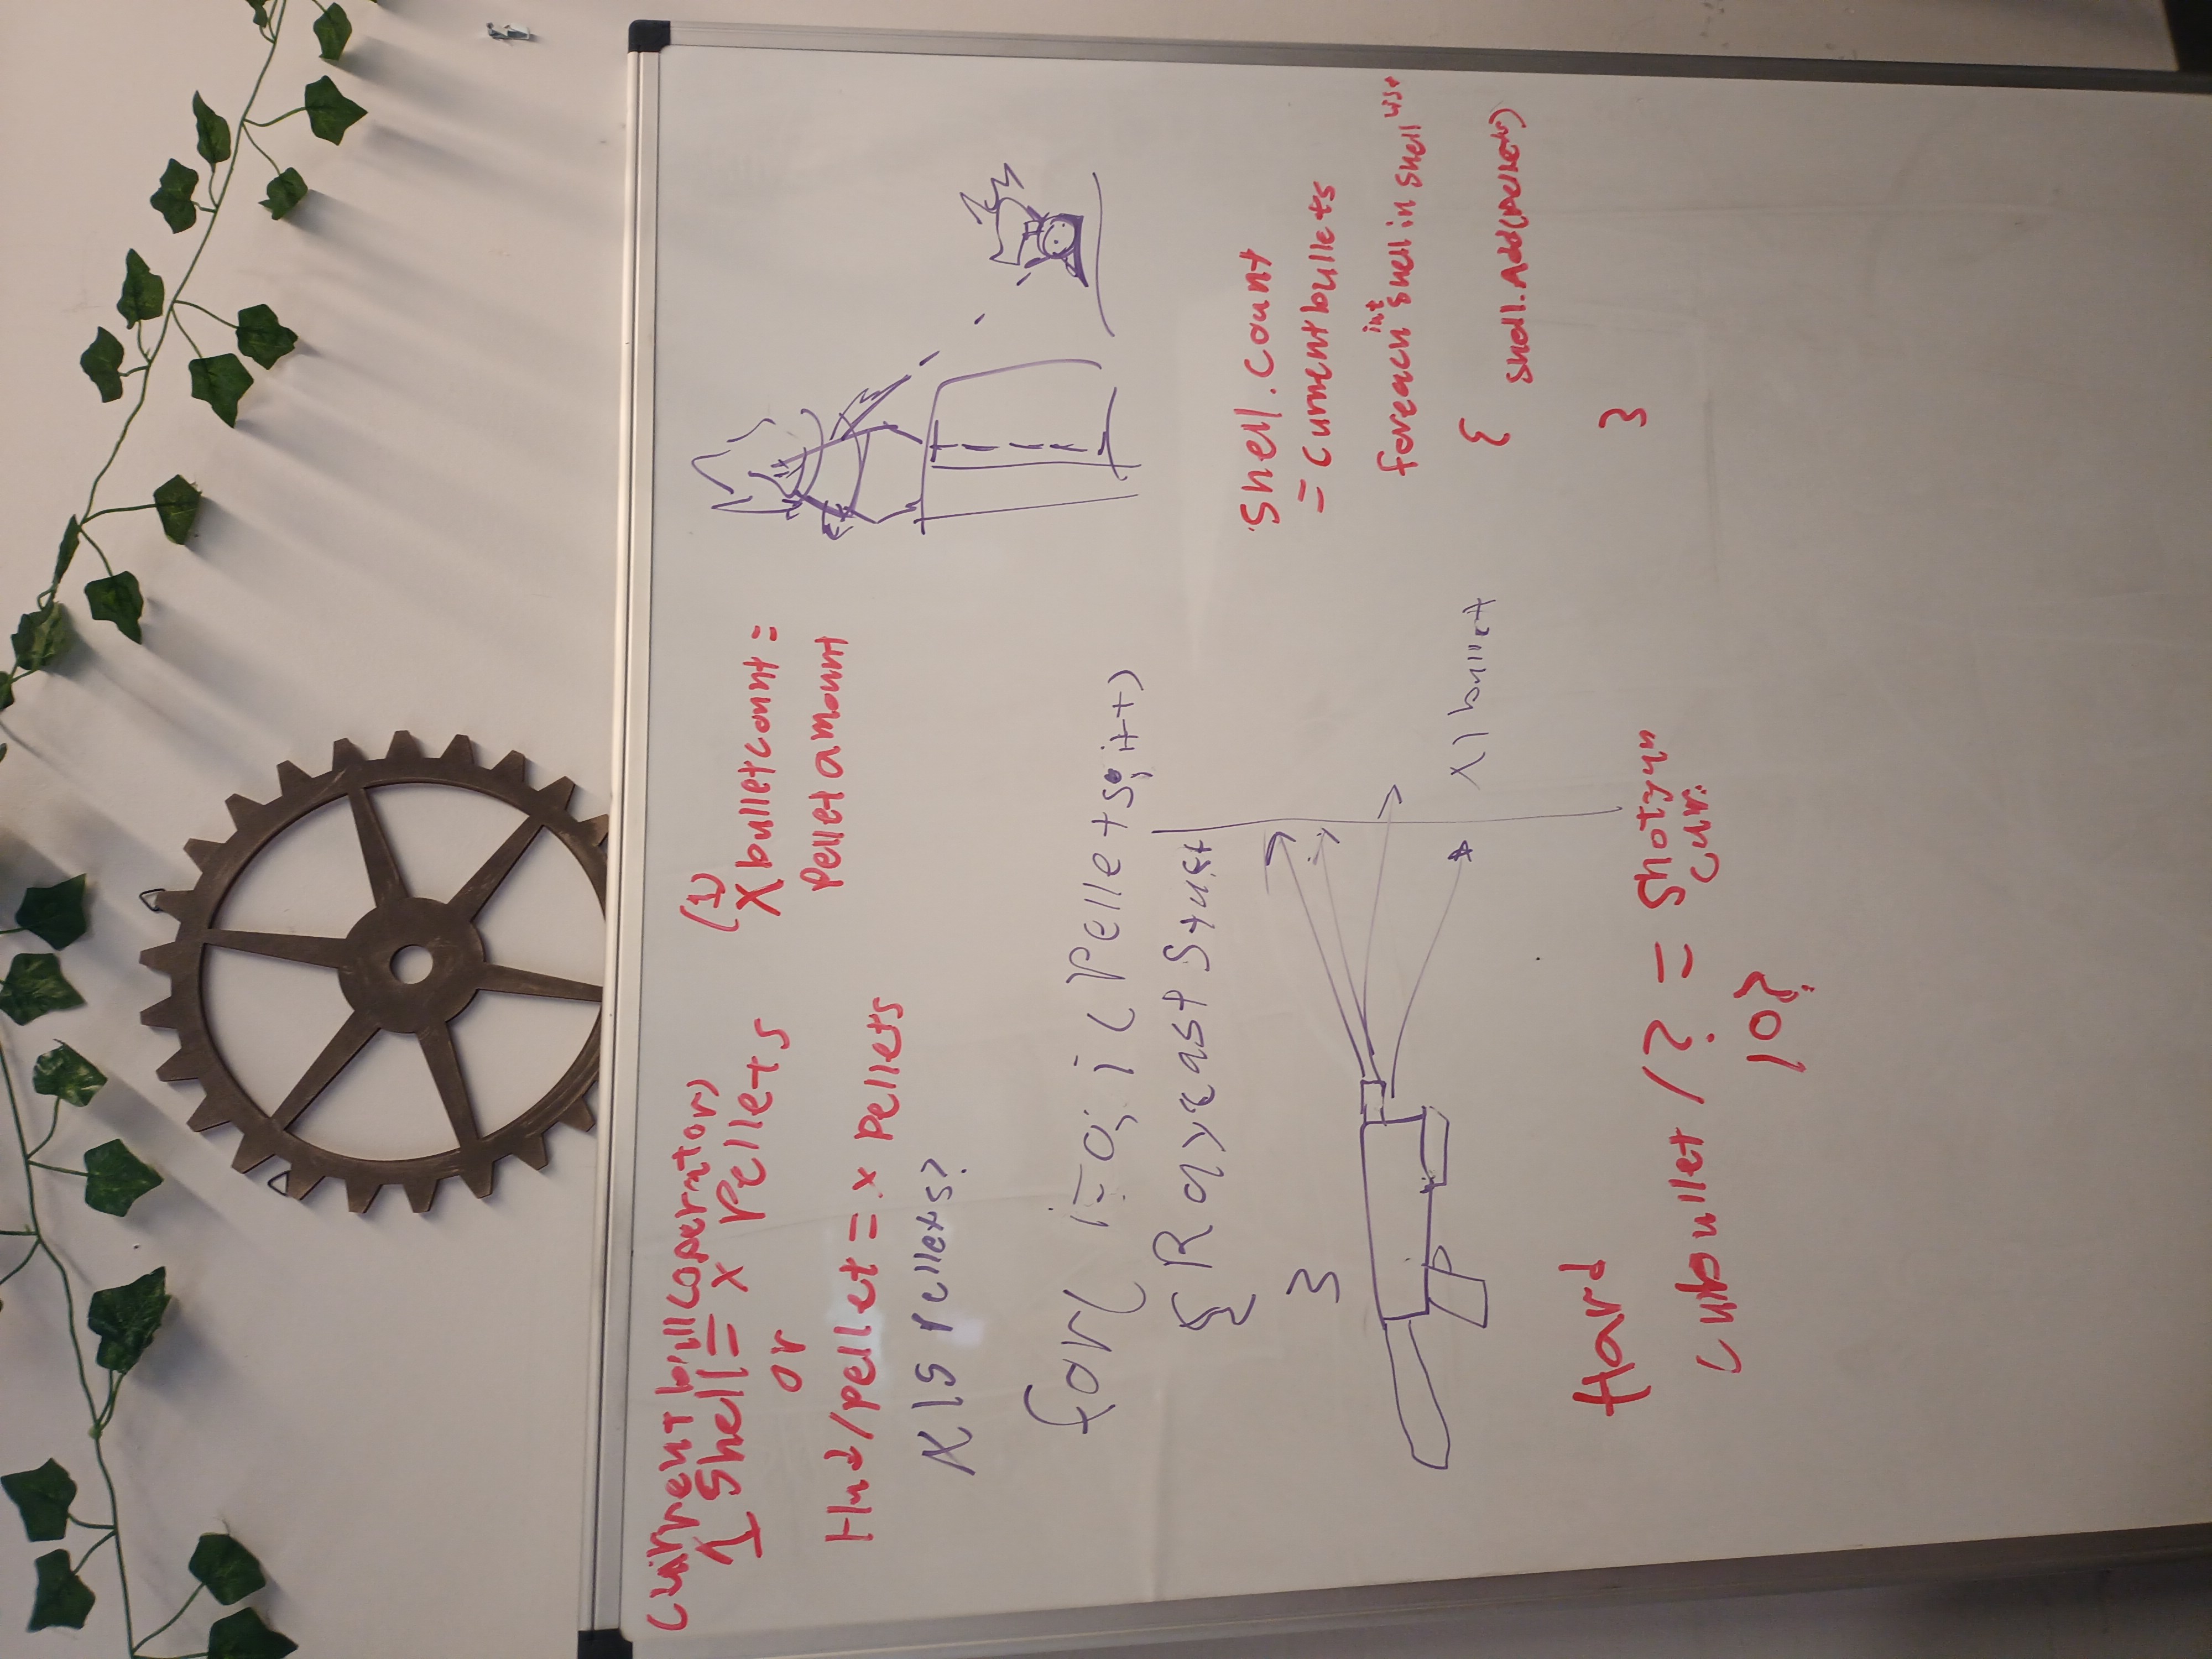 1 Shell = x Pellets
or
Hud/pellet = x Pellets
X IS Pellets?
(1)
X bulletcount =
Pellet amount
for( i=0; i ( Pellets; i++)
{ Raycast Stuff
}
X 1 bullet
Shell.Count
= Currentbullets
foreach int shell in shell list
{
shell.Add(pellets)
}
Hard
curbullet /? = Shotgun
cur.
10?